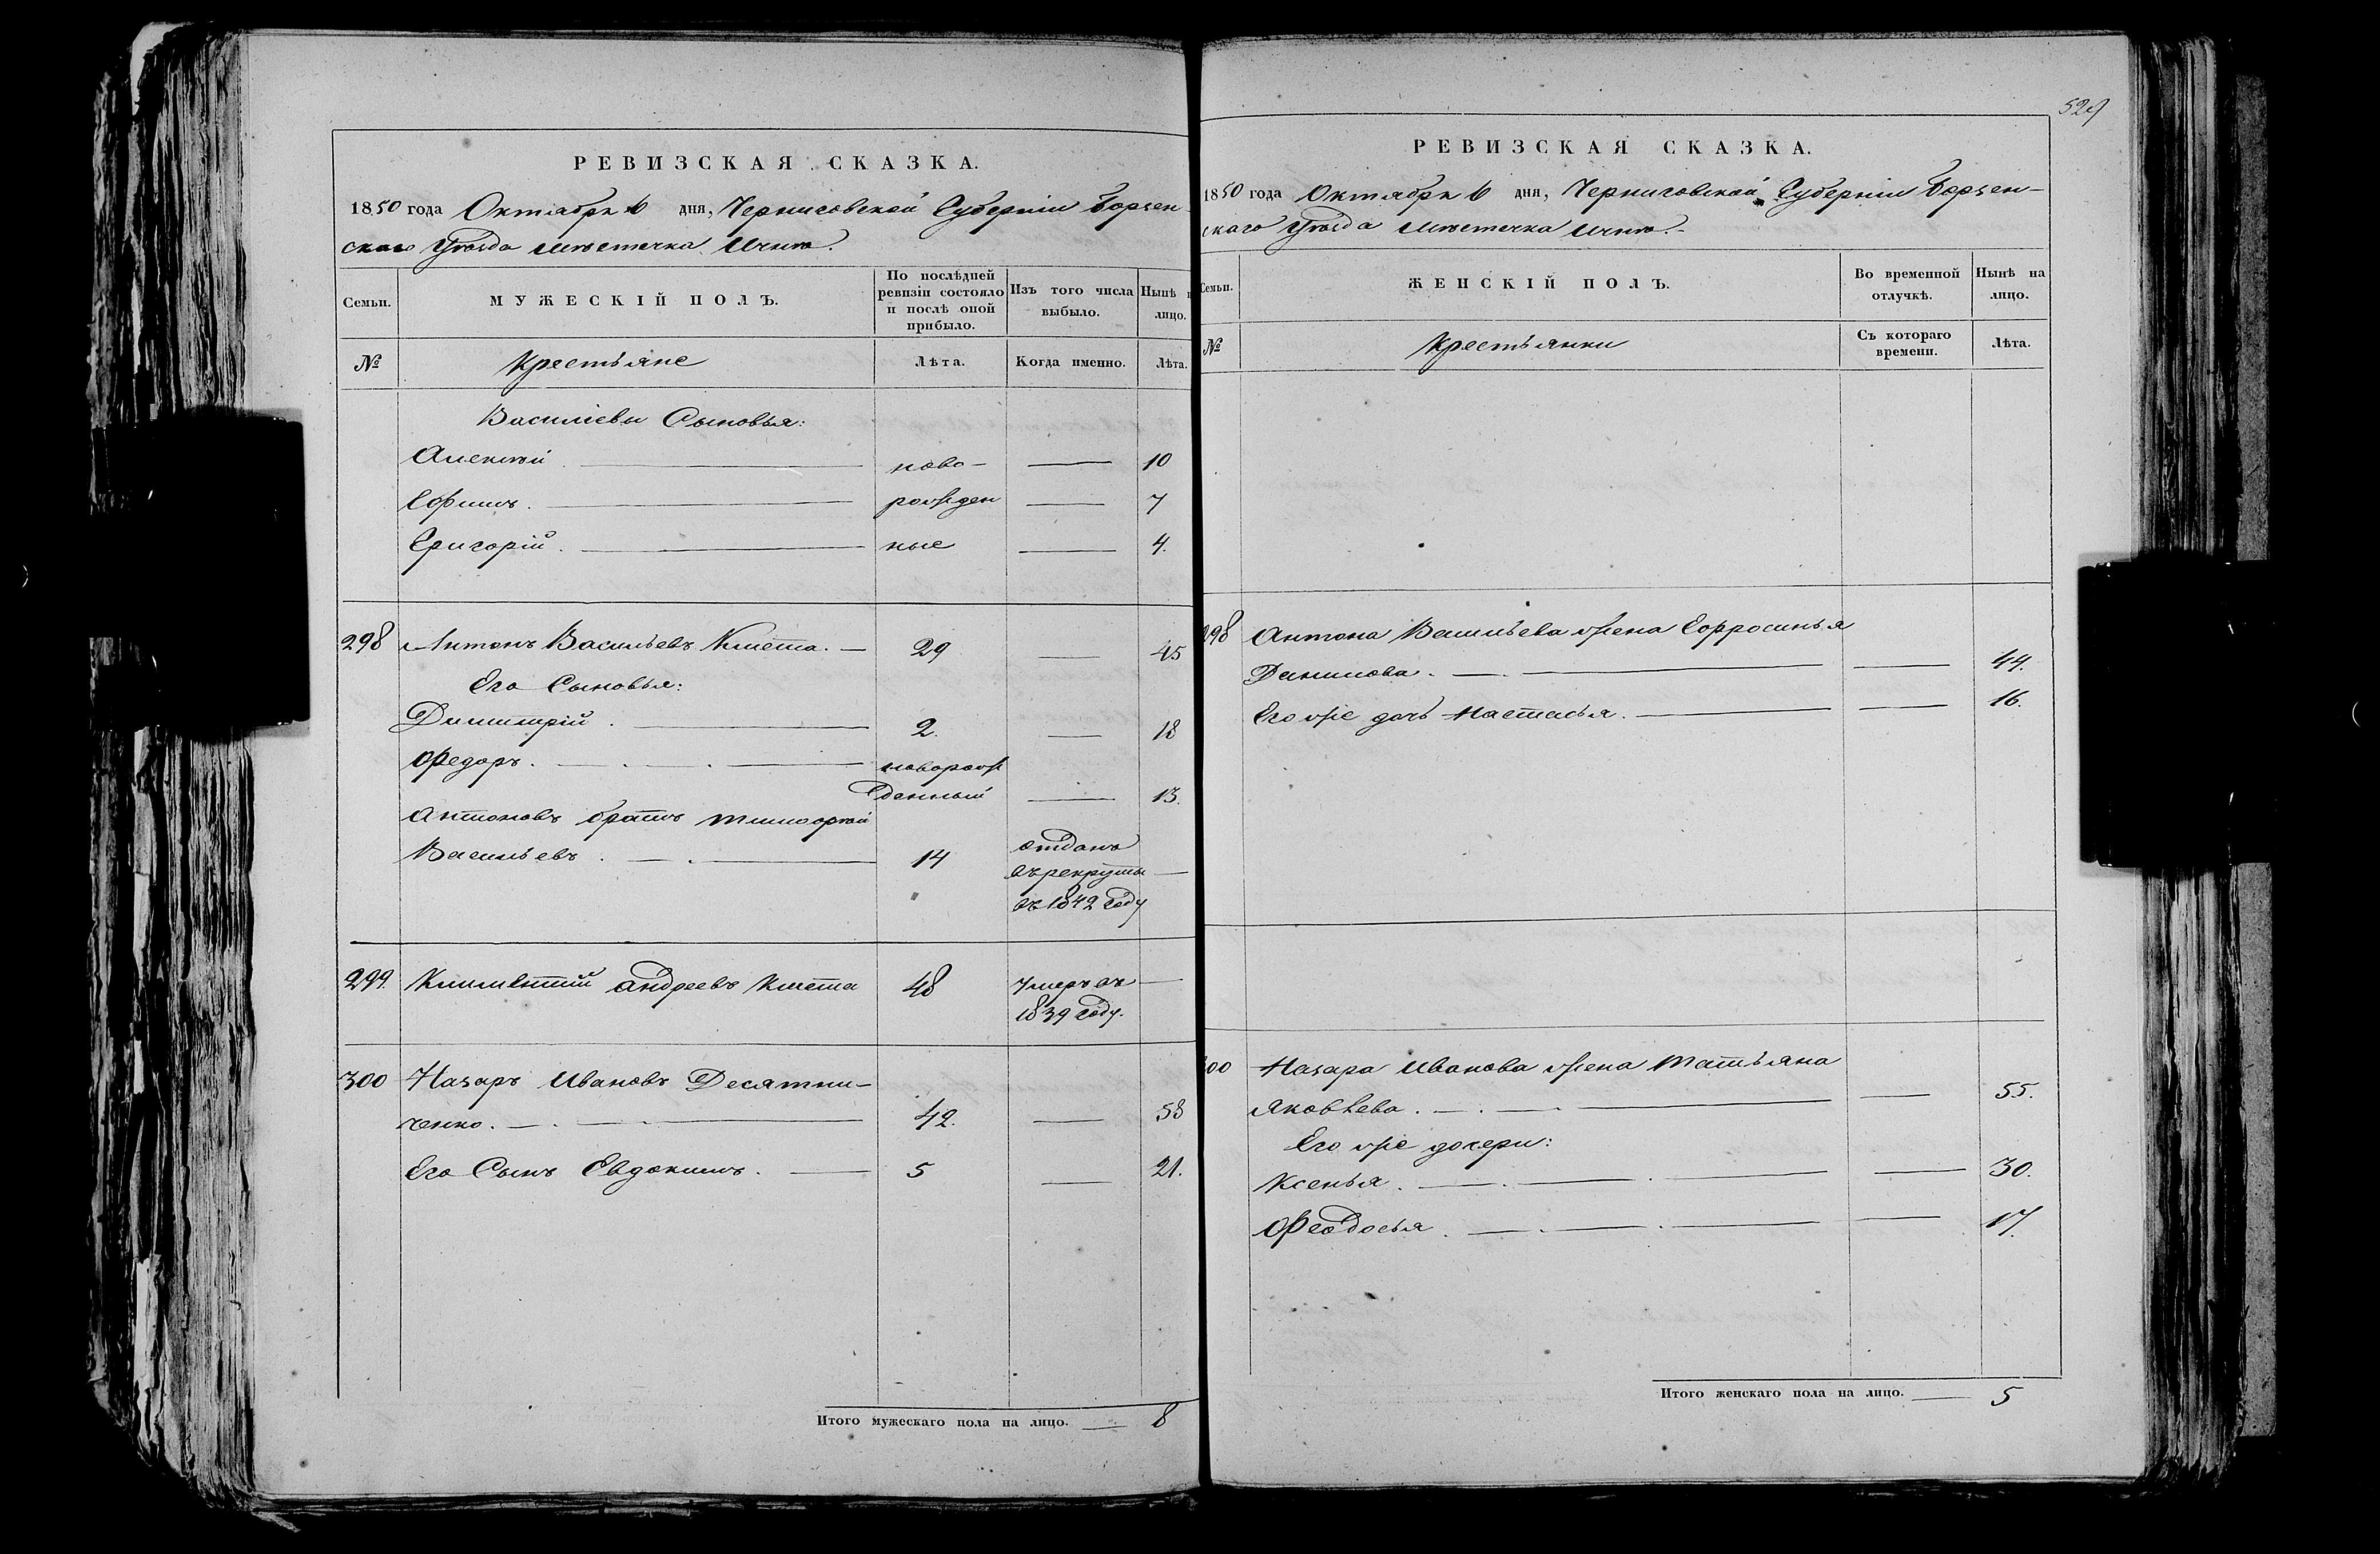 РЕВИЗСКАЯ СКАЗКА.
1850 года Октября 6 дня, Черниговской Губерніи Борзен-
скаго Уѣзда Мѣстечка Ични.
Семьи. МУЖЕСКІЙ ПОЛЪ. По послѣдней ревизіи состояло и послѣ оной прибыло. Изъ того числа выбыло. Нынѣ на лицо.
№ Крестьяне Лѣта. Когда именно. Лѣта.
Василіевы Сыновья:
Алексѣй ново- 10
Ефимъ. рожден 7
Григорій. ные 4.
298 Антонъ Васильевъ Кмета. 29 45
Его Сыновья:
Димитрій. 2. 18
Федоръ. новорож
денный 13.
Антоновъ братъ Тимофѣй
Васильевъ. 14 отданъ
въ рекруты
въ 1842 году
299. Климентій Андреевъ Кмета 48 умеръ въ
1839 году.
300 Назаръ Ивановъ Десятни-
ченко. 42. 58
Его Сынъ Евдокимъ. 5 21.
Итого мужескаго пола на лицо. 8
529
РЕВИЗСКАЯ СКАЗКА.
1850 года Октября 6 дня, Черниговской Губерніи Борзен-
скаго Уѣзда Мѣстечка Ични.
Семьи. ЖЕНСКІЙ ПОЛЪ. Во временной отлучкѣ. Нынѣ на лицо.
№ Крестьянки Съ котораго времени. Лѣта.
298 Антона Васильева жена Евфросинья
Данилова. 44.
Его же дочь Настасья. 16.
300 Назара Иванова жена Татьяна
Яковлева. 55.
Его же дочери:
Ксенья. 30.
Феодосья. 17.
Итого женскаго пола на лицо. 5